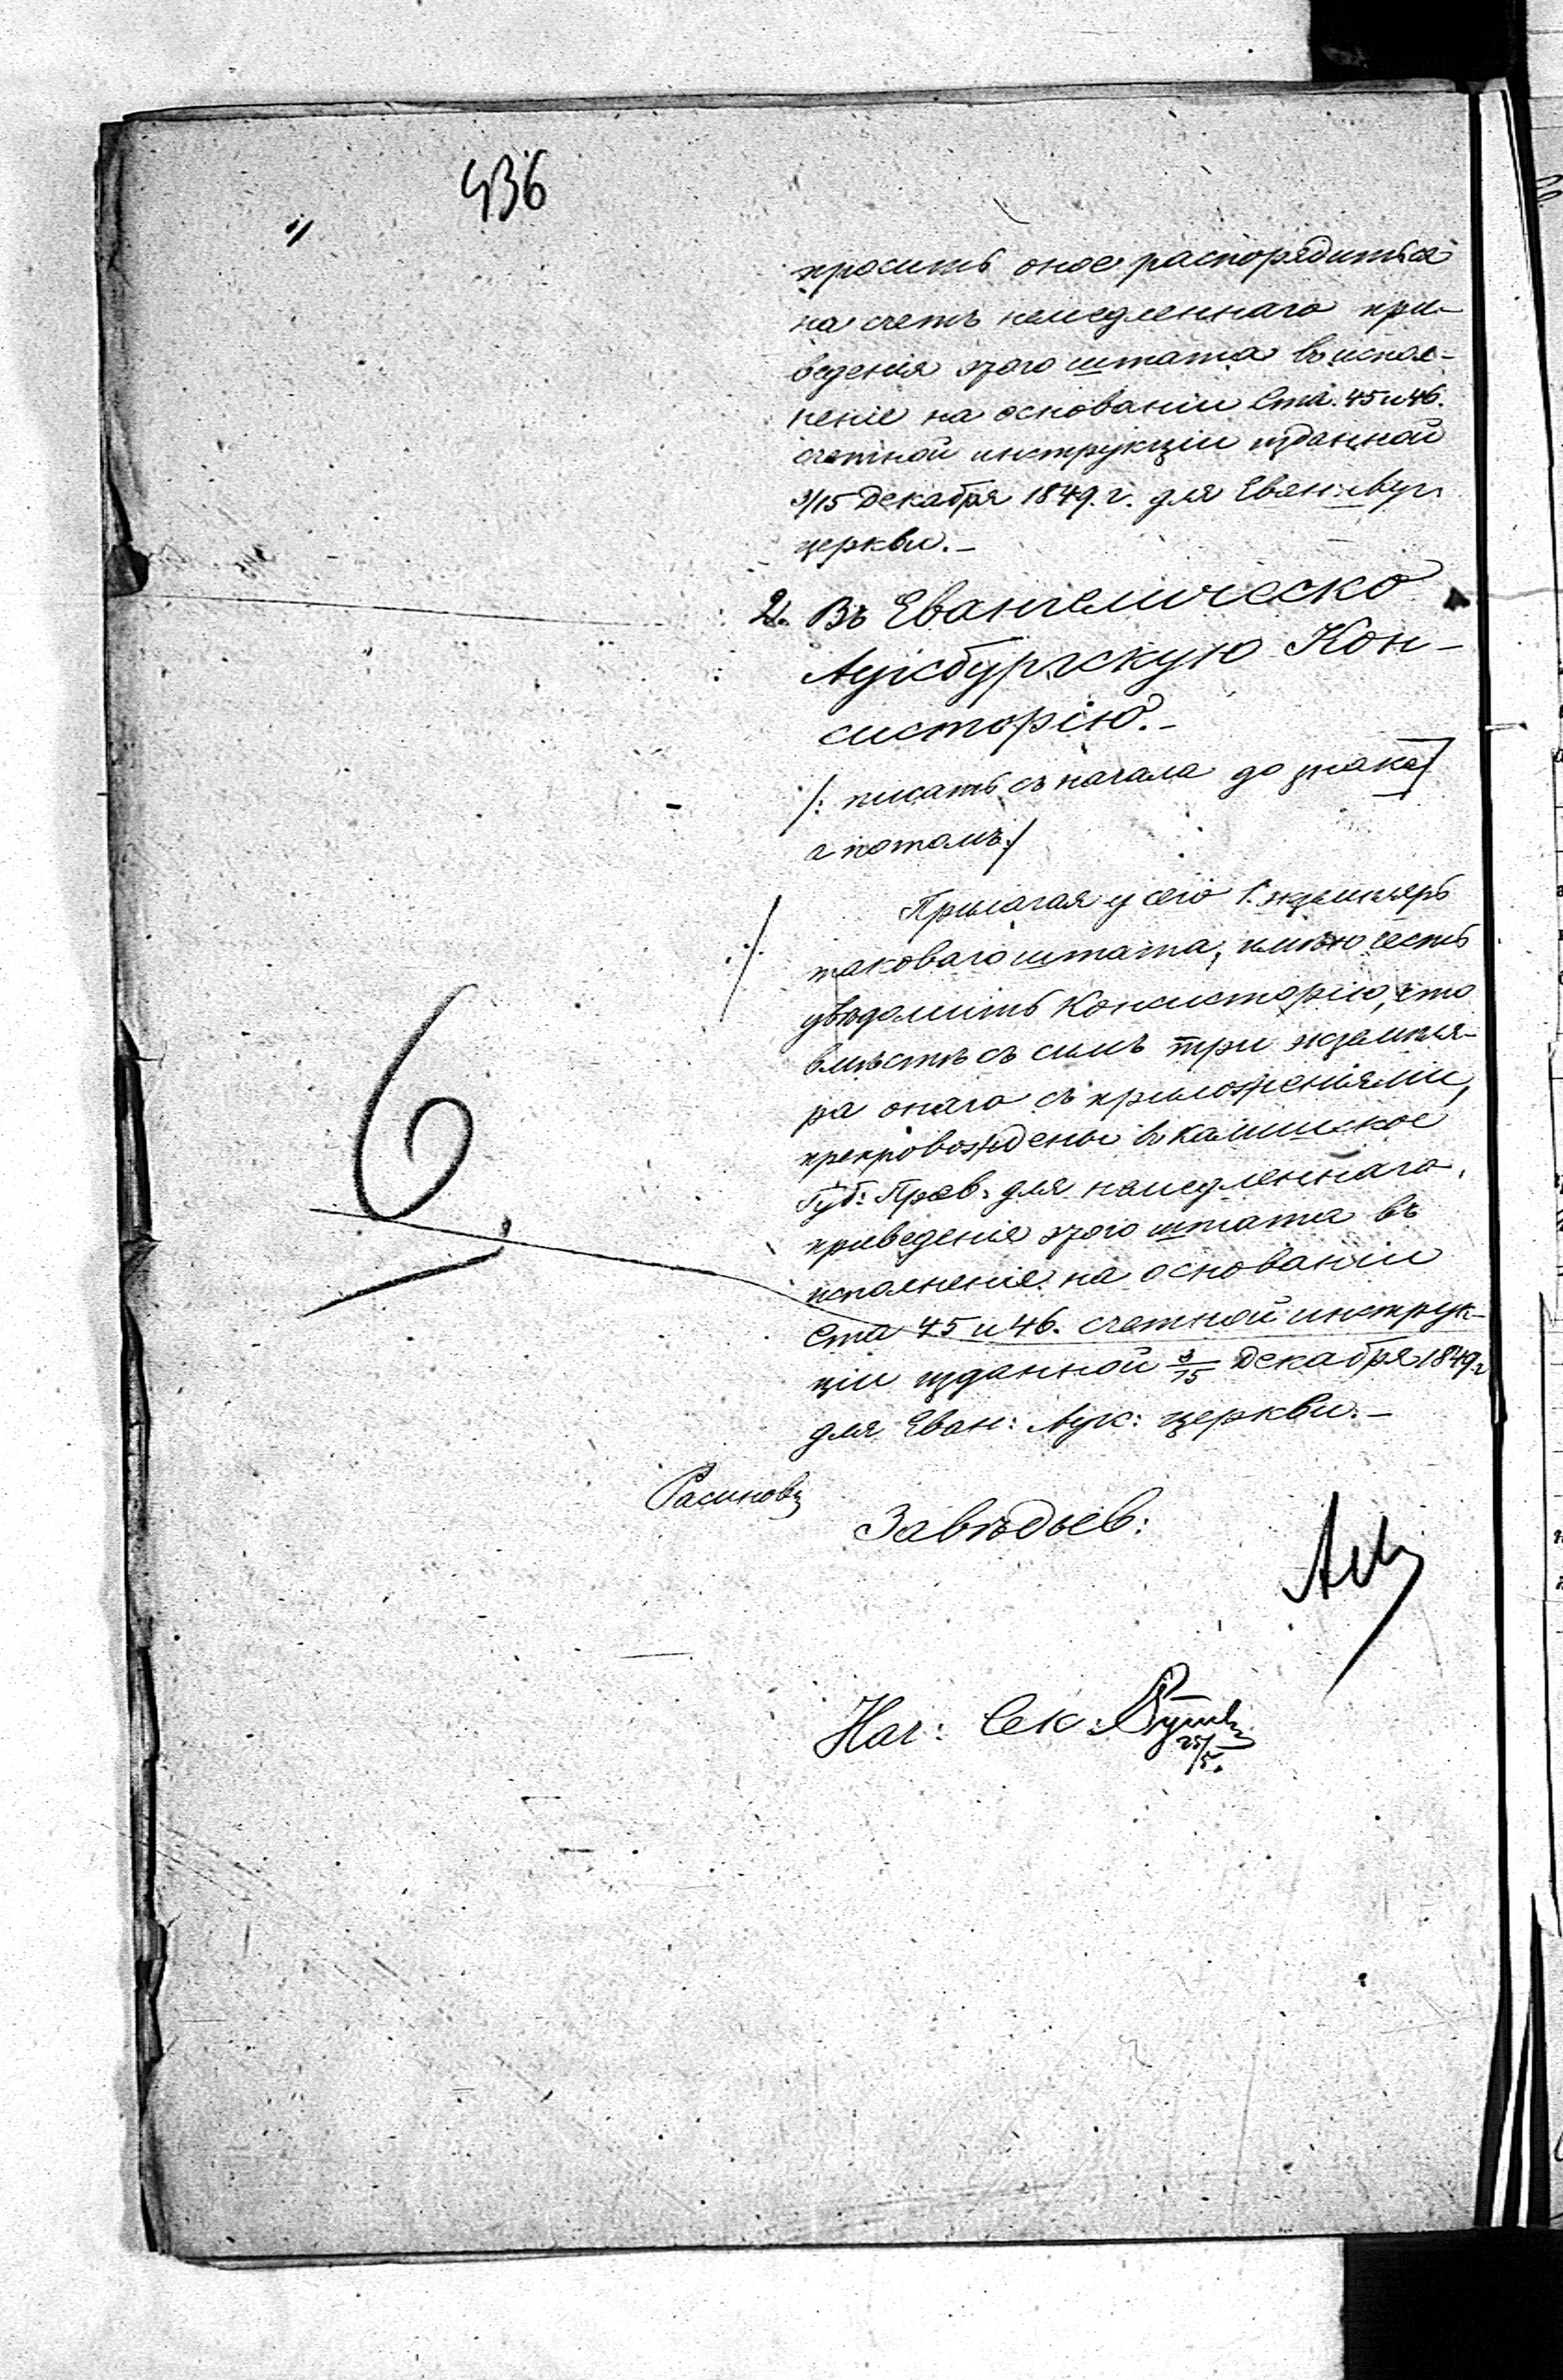 436
просить оное распорядиться
на счетъ немедленнаго при-
веденія этого штата въ испол-
неніе на основаніи Ста. 45 и 46.
счетной инструкціи изданной
3/15 Декабря 1849. г. для Еван: Аугс
церкви.-
2. Въ Евангелическо
Аугсбургскую Кон-
систорію.-
/: писать съ начала до знака
а потомъ:/
Прилагая у сего 1. экземпляръ
таковаго штата, имѣю честь
увѣдомить Консисторію, что
вмѣстѣ съ симъ три экземпля-
ра онаго съ приложеніями,
препровождены въ Калишское
Губ: Прав: для немедленнаго
приведенія этого штата въ
исполненіе на основаніи
Ста 45 и 46. счетной инструк-
ціи изданной 3/15 Декабря 1849 г
для Еван: Аугс: церкви.-
6.
Завѣдыв:
Нач: Сек:
25/5.